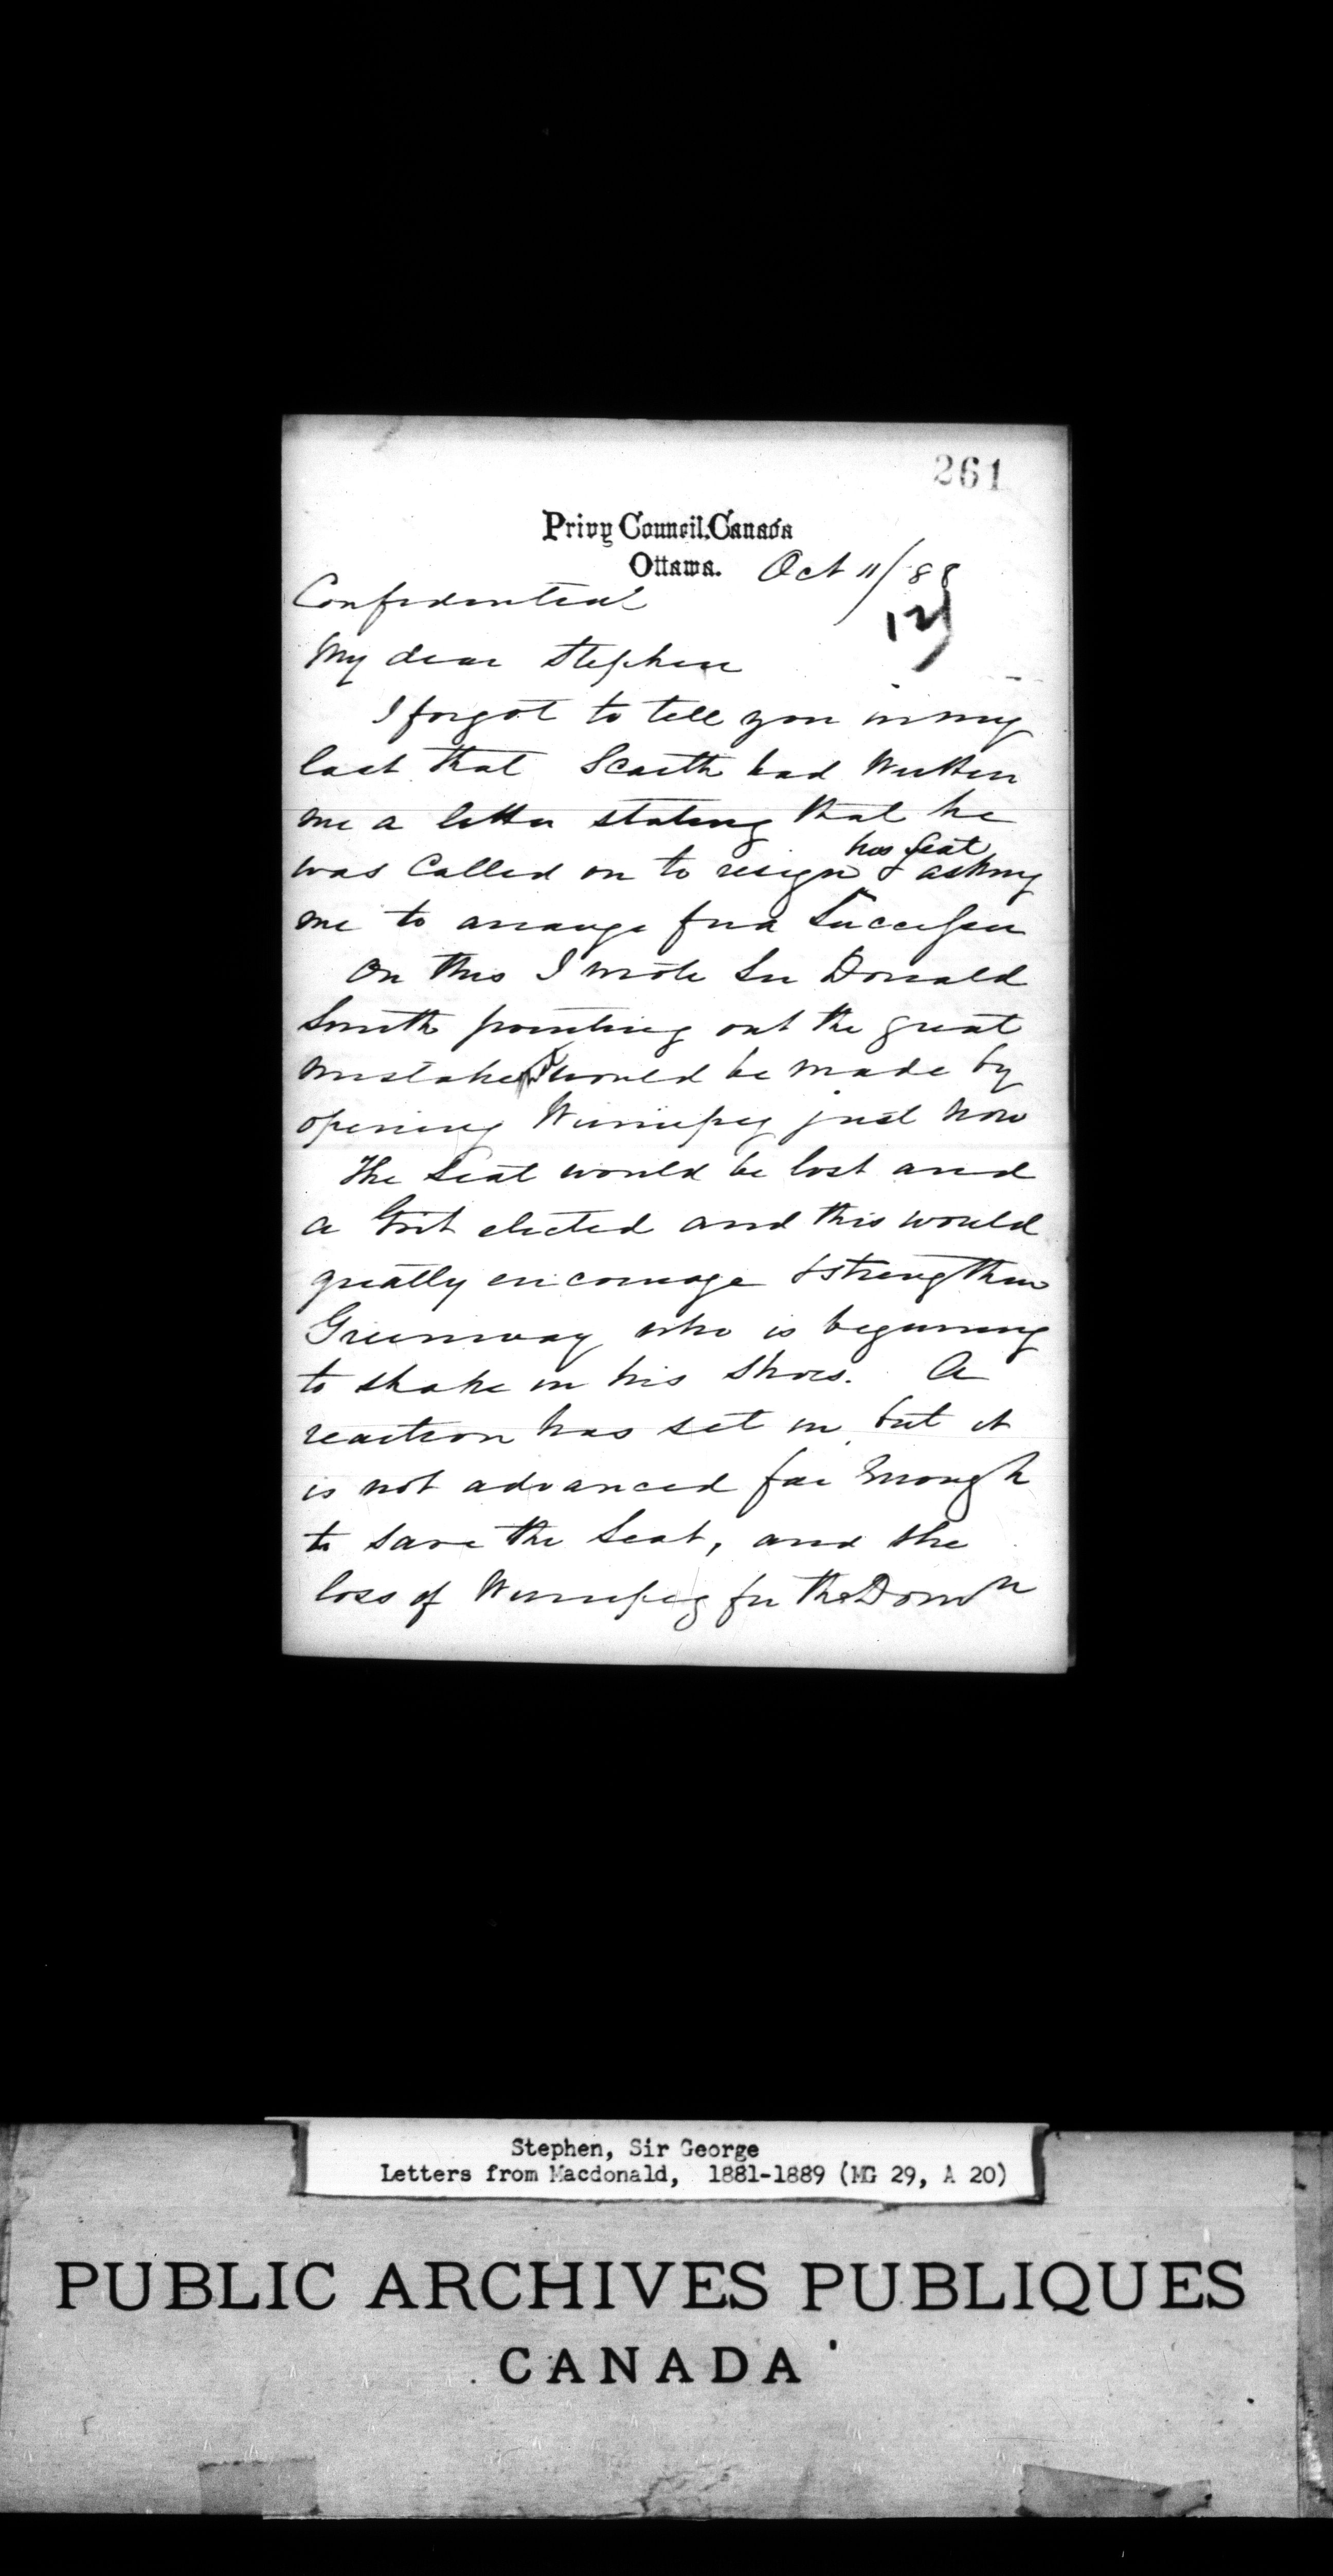 261
Privy Council, Canada
Ottawa. Oct 11/88
12)
Confidential
My dear Stephen
I forgot to tell you in my
last that Scarth had written
me a letter stating that he
his seat
was called on to resign & asking
me to arrange for a Successor
On this I wrote Sir Donald
Smith pointing out the great
mistake would be made by
opening Winnipeg just now
The Seat would be lost and
a Grit elected and this would
greatly encourage & strengthen
Greenway who is beginning
to shake in his shoes. A
reaction has set in, but it
is not advanced far enough
to save the Seat, and the
loss of Winnipeg for the Domn
Stephen, Sir George
Letters from Macdonald, 1881-1889 (MG 29, A 20)
PUBLIC ARCHIVES PUBLIQUES
CANADA